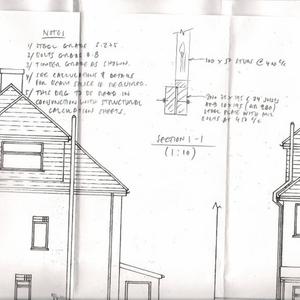 NOTES
1/ STEEL GRADE S.275.
2/ BOLTS GRADE 8.8
3/ TIMBER GRADE AS SHOWN.
4/ SEE CALCULATIONS & DETAILS
FOR WHERE SPLICE IS REQUIRED.
5/ THIS DRG TO BE READ IN
CONJUNCTION WITH STRUCTURAL
CALCULATION SHEETS.
100 x 50 STUDS @ 400 c/c
AND 10 x 195
STEEL PLATE WITH M12
BOLTS AT 450 c/c
SECTION 1-1
(1:10)